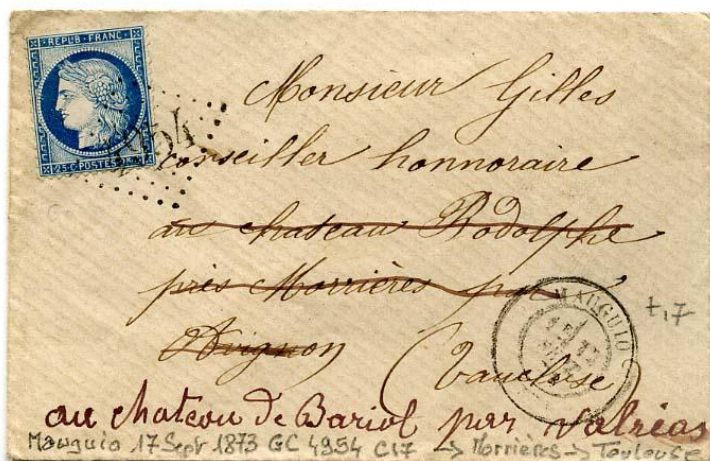 REPUB·FRANC·
25·C·POSTES·25·C
4954
Monsieur Gilles
conseiller honnoraire
au chateau Rodolphe
près Morrières par
Avignon (Vaucluse)
MAUGUIO
17
t,17
au chateau de Bariol par Valréas
Mauguio 17 Sept 1873 GC 4954 C17 -> Morrières -> Toulouse